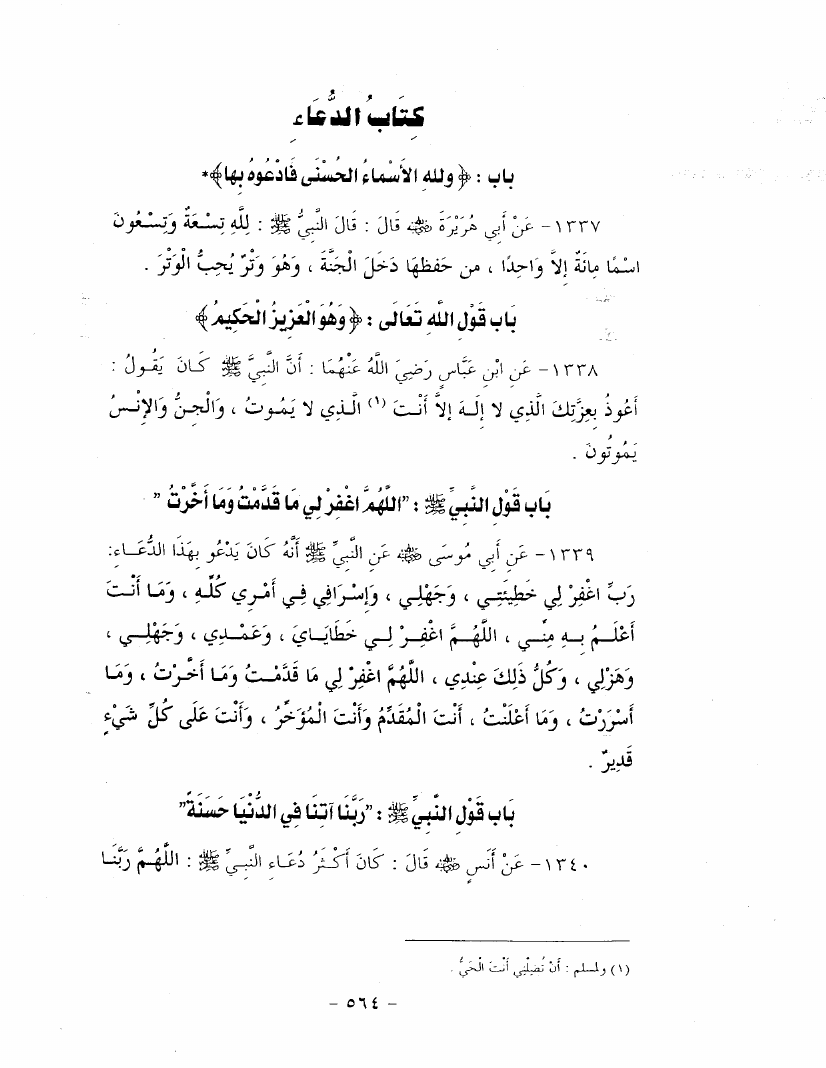 كتَابُ الدُّعَاءِ
باب : ﴿ ولله الأسْمَاءُ الحُسْنَى فَادْعُوهُ بِهَا﴾*
١٣٣٧- عَنْ أَبِي هُرَيْرَةَ ﷺ قَالَ : قَالَ النَّبِيُّ ﷺ : لِلَّهِ تِسْعَةٌ وَتِسْعُونَ
اسْمًا مِائَةٌ إِلاَّ وَاحِدًا ، من حَفِظَهَا دَخَلَ الْجَنَّةَ ، وَهُوَ وَتْرٌ يُحِبُّ الْوَتْرَ .
بَاب قَوْلِ اللَّهِ تَعَالَى : ﴿ وَهُوَ الْعَزِيزُ الْحَكِيمُ ﴾
١٣٣٨- عَنِ ابْنِ عَبَّاسٍ رَضِيَ اللَّهُ عَنْهُمَا : أَنَّ النَّبِيَّ ﷺ كَانَ يَقُولُ :
أَعُوذُ بِعِزَّتِكَ الَّذِي لا إِلَهَ إِلاَّ أَنْتَ (١) الَّذِي لا يَمُوتُ ، وَالْجِنُّ وَالإِنْسُ
يَمُوتُونَ .
بَاب قَوْلِ النَّبِيِّ ﷺ : "اللَّهُمَّ اغْفِرْ لِي مَا قَدَّمْتُ وَمَا أَخَّرْتُ "
١٣٣٩- عَنِ أَبِي مُوسَى ﷺ عَنِ النَّبِيِّ ﷺ أَنَّهُ كَانَ يَدْعُو بِهَذَا الدُّعَاءِ:
رَبِّ اغْفِرْ لِي خَطِيئَتِي ، وَجَهْلِي ، وَإِسْرَافِي فِي أَمْرِي كُلِّهِ ، وَمَا أَنْتَ
أَعْلَمُ بِهِ مِنِّي ، اللَّهُمَّ اغْفِرْ لِي خَطَايَايَ ، وَعَمْدِي ، وَجَهْلِي ،
وَهَزْلِي ، وَكُلُّ ذَلِكَ عِنْدِي ، اللَّهُمَّ اغْفِرْ لِي مَا قَدَّمْتُ وَمَا أَخَّرْتُ ، وَمَا
أَسْرَرْتُ ، وَمَا أَعْلَنْتُ ، أَنْتَ الْمُقَدِّمُ وَأَنْتَ الْمُؤَخِّرُ ، وَأَنْتَ عَلَى كُلِّ شَيْءٍ
قَدِيرٌ .
بَاب قَوْلِ النَّبِيِّ ﷺ : "رَبَّنَا آتِنَا فِي الدُّنْيَا حَسَنَةً"
١٣٤٠- عَنْ أَنَسٍ ﷺ قَالَ : كَانَ أَكْثَرُ دُعَاءِ النَّبِيِّ ﷺ : اللَّهُمَّ رَبَّنَا
(١) ولمسلم : أَنْ تُضِلَّنِي أَنْتَ الْحَيُّ .
– ٥٦٤ –